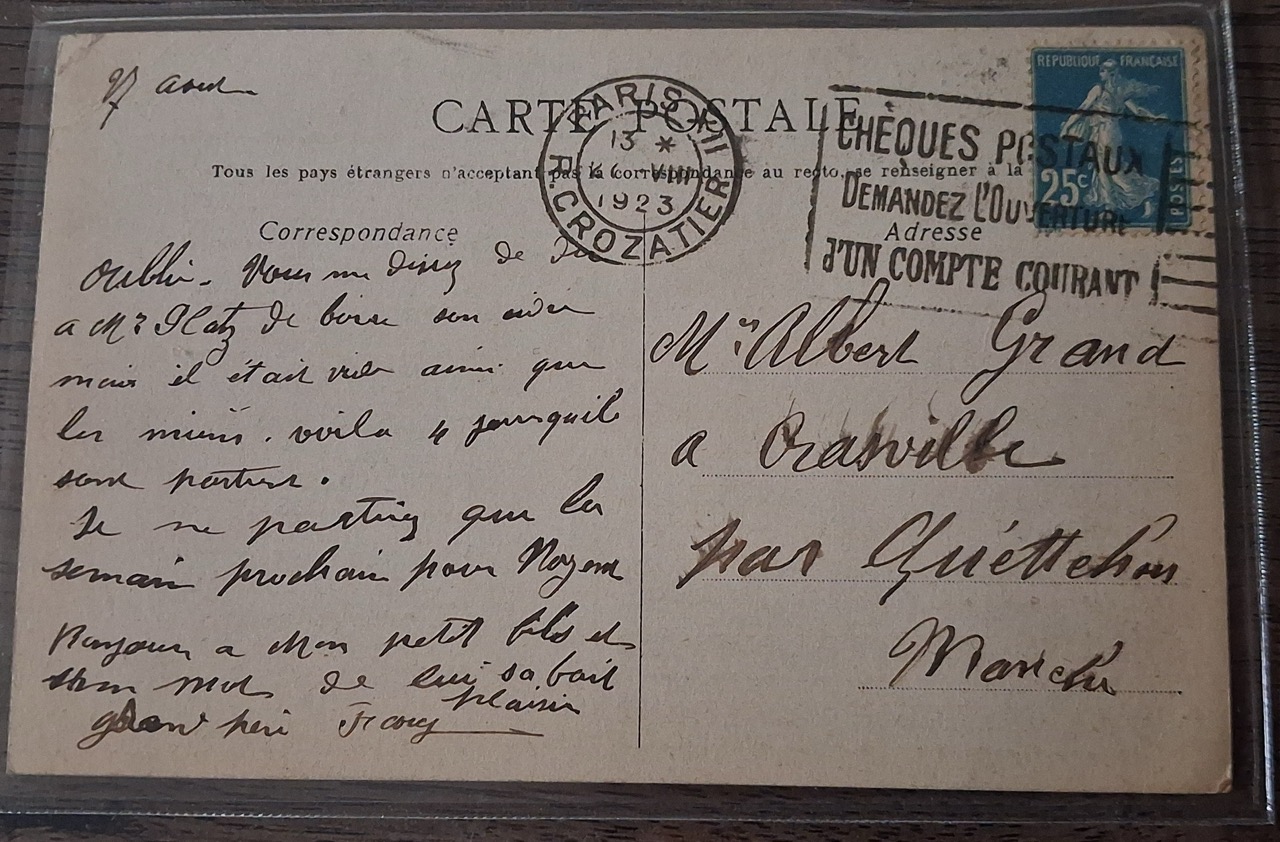 août
CARTE POSTALE
Tous les pays étrangers n'acceptant pas la correspondance au recto, se renseigner à la
PARIS XII
13 *
VIII
1923
R. CROZATIER
CHÈQUES POSTAUX
DEMANDEZ L'OUVERTURE
D'UN COMPTE COURANT
REPUBLIQUE FRANÇAISE
25c
POSTES
Correspondance
Oublie. Vous me disiez de
a Mr de boire son
mais il était vide ainsi que
les miens. voila 4 jours quil
sont partirs.
Je ne partirez que la
semain prochain pour
Bonjour a Mon petit fils et
mot de lui sa fait
plaisir
grand
Adresse
Mr Albert Grand
a Crasville
par Quéttehou
Manche